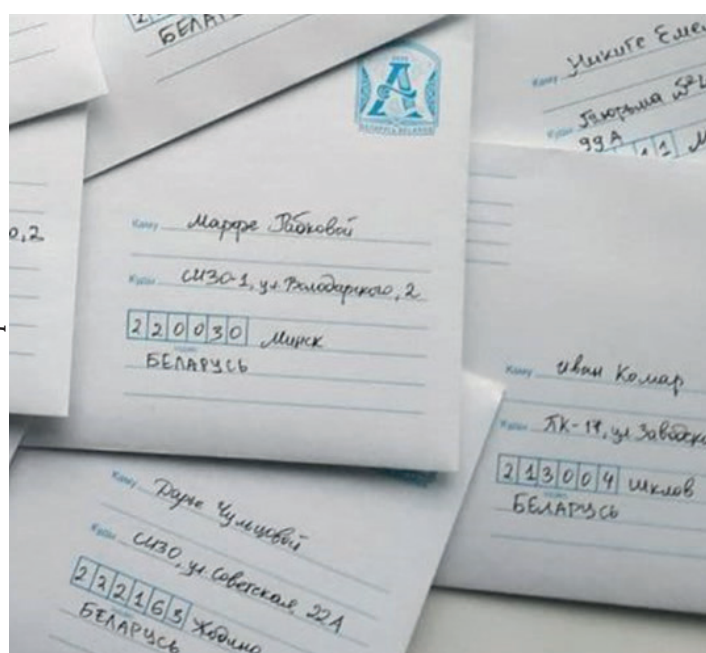 БЕЛА
Кому Никите Емел
Куда Тюрьма №4
99А
11 М
0,2
Кому Марфе Рабковой
Куда СИЗО-1, ул Володарского, 2
220030 Минск
БЕЛАРУСЬ
Кому Иван Комар
Куда ПК-17, ул Заводска
213004 Шклов
БЕЛАРУСЬ
Кому Дарье Чульцовой
Куда СИЗО, ул Советская 22А
222163 Жодино
БЕЛАРУСЬ